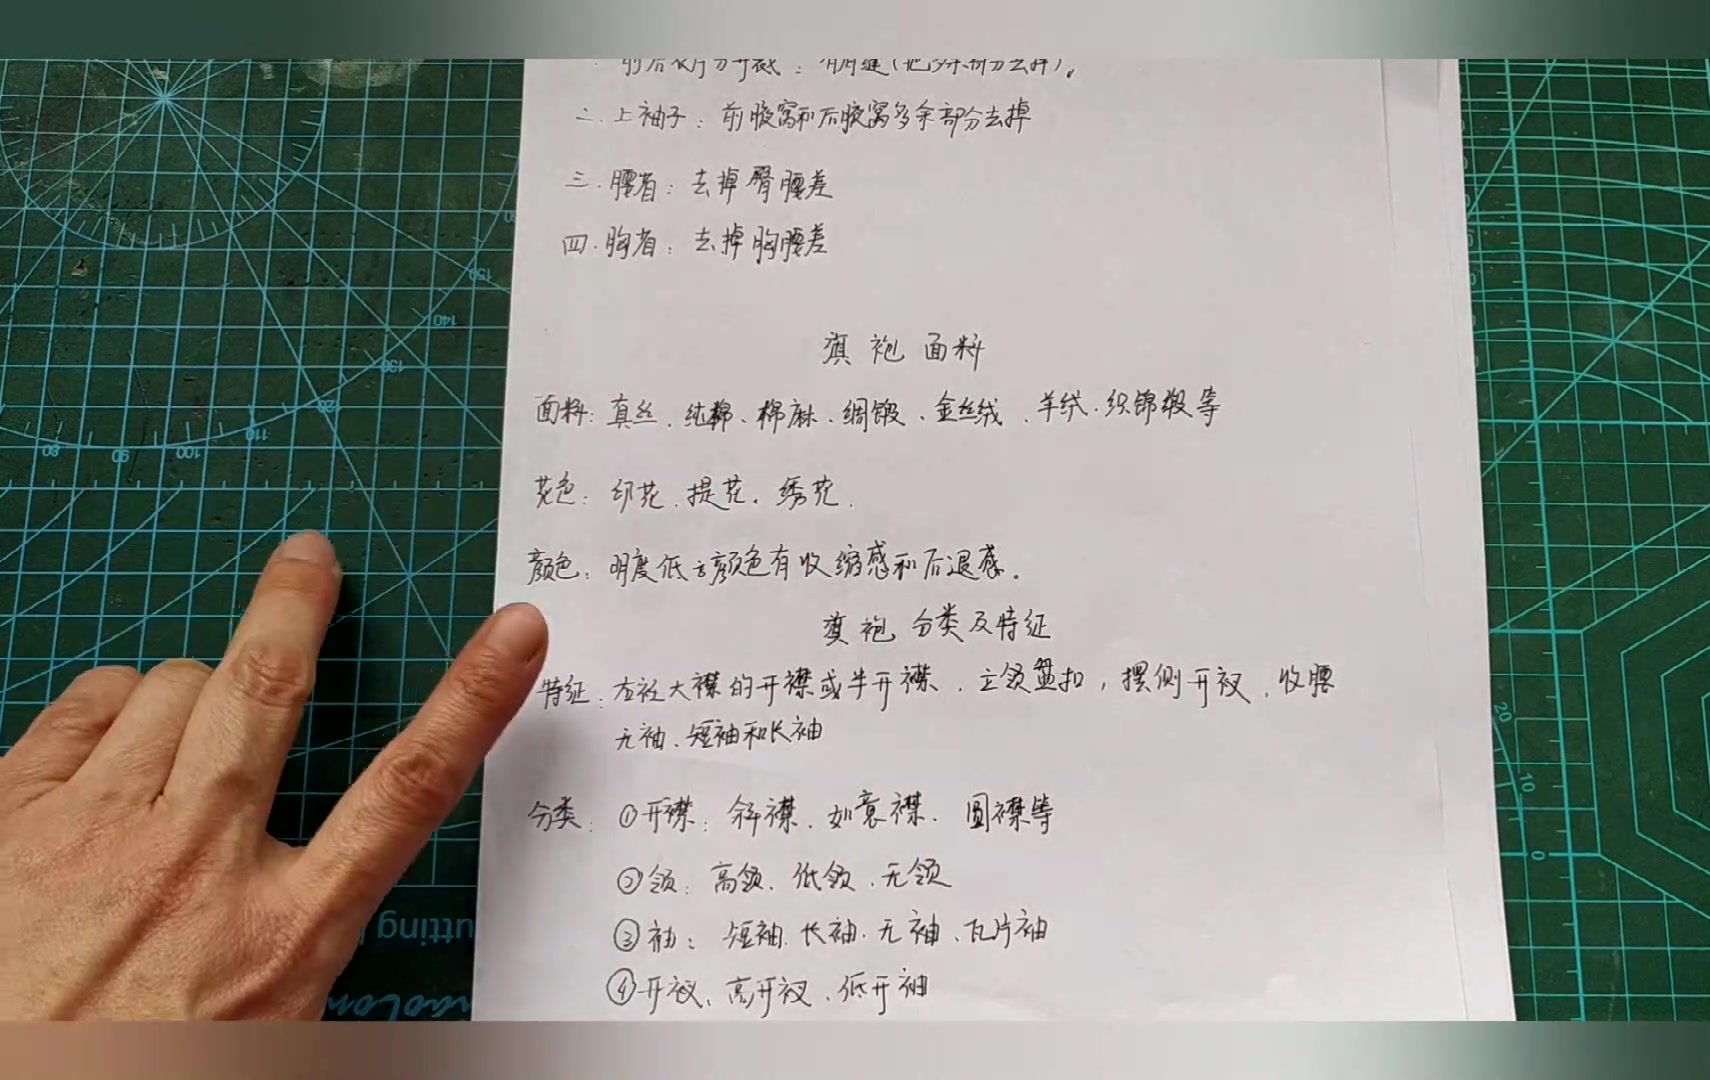 前后衣片分开裁:有肩缝(把多余部分去掉)。
二.上袖子:前腋窝和后腋窝多余部分去掉
三.腰省:去掉臀腰差
四.胸省:去掉胸腰差
旗袍面料
面料:真丝、纯棉、棉麻、绸缎、金丝绒、羊绒.织锦缎等
花色:印花、提花.绣花.
颜色:明度低的颜色有收缩感和后退感.
旗袍分类及特征
特征:右衽大襟的开襟或半开襟、立领盘扣,摆侧开衩、收腰
无袖、短袖和长袖
分类:①开襟:斜襟、如意襟.圆襟等
②领:高领、低领、无领
③袖:短袖.长袖.无袖、瓦片袖
④开衩、高开衩、低开袖
150
140
130
120
110
100
90
80
20
10
0